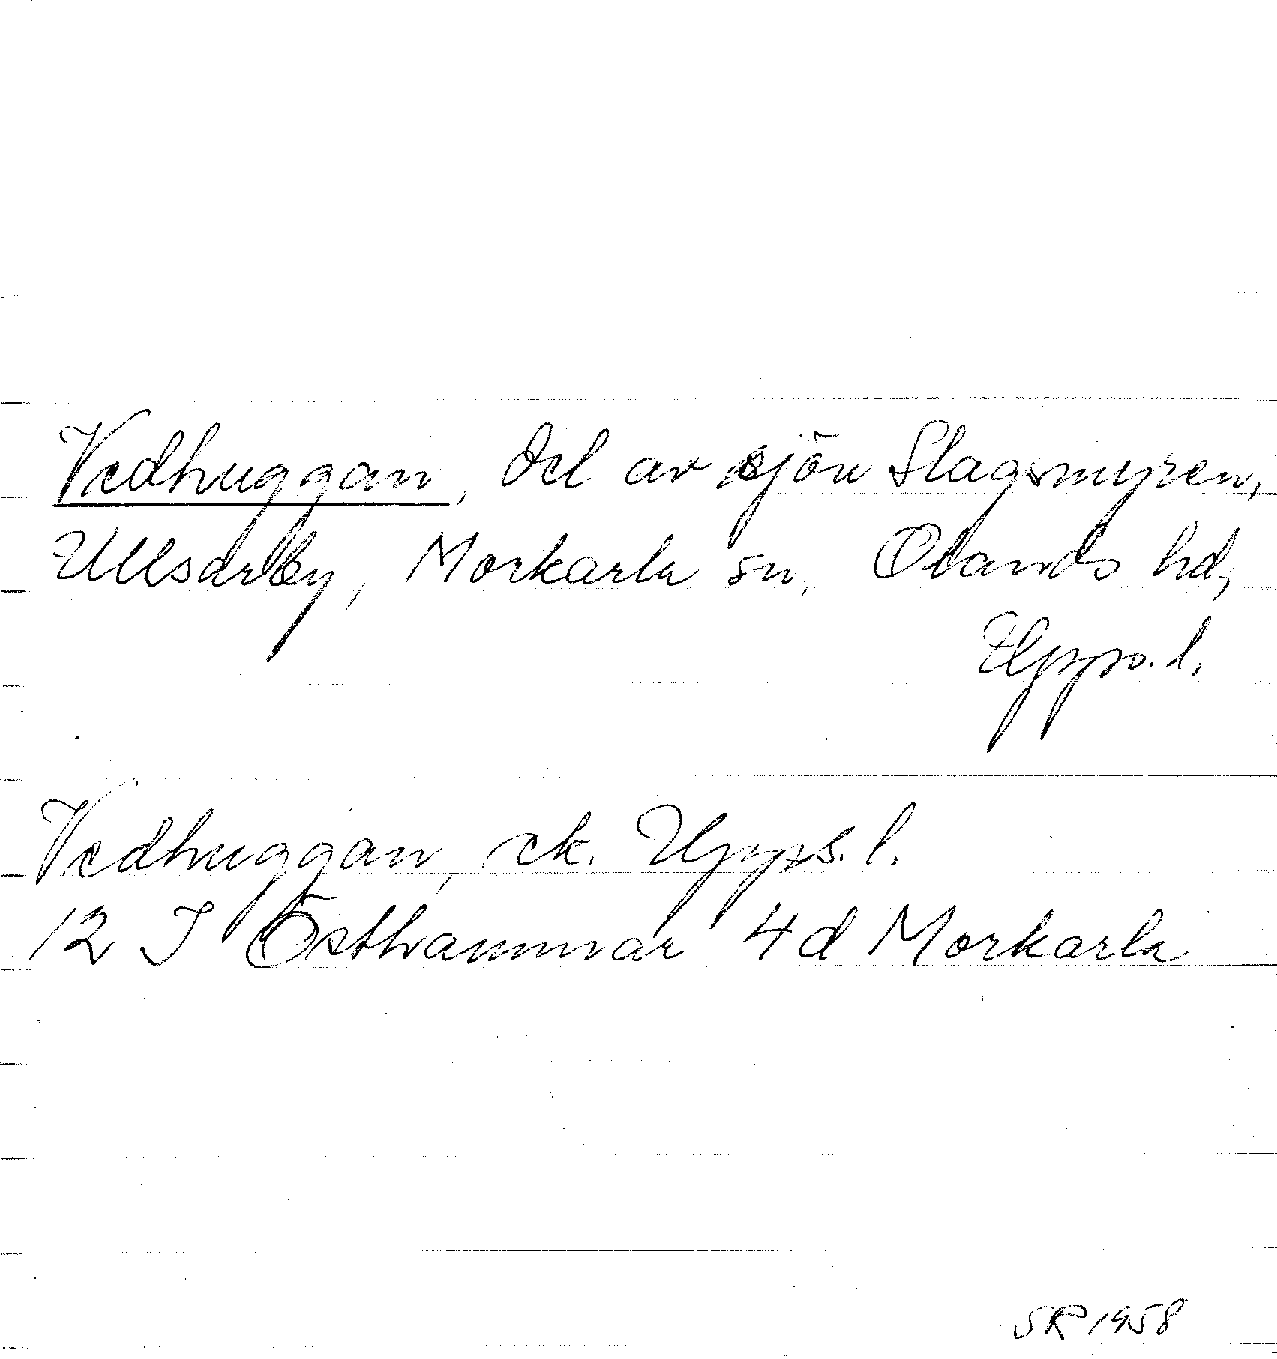 Vedhuggan, del av sjön Slagsmyren,
Ullsarby, Morkarla sn, Olands hd,
Upps. l.
Vedhuggan, ek. Upps. l.
12 I Östhammar 4d Morkarla
SR 1958